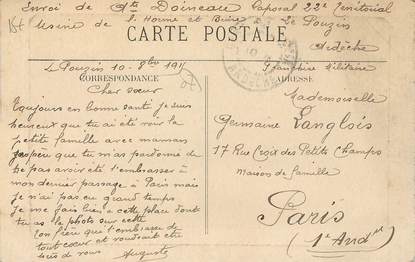 Envoi de Gte Doineau Caporal 22e territorial
Usine de l'Homme et Buire Le Pouzin
CARTE POSTALE Ardèche
Le Pouzin 10-8bre 1915 Franchise Militaire
CORRESPONDANCE ADRESSE
Cher sœur
Toujours en bonne santé je suis
heureux que tu ai été voir la
petite famille avec maman
j'espère que tu m'as pardonné de
ne pas avoir été t'embrasser à
mon dernier passage à Paris mais
je n'ai pas eu grand temps
Je me fais bien à cette place dont
tu as la photo sur cette
ton frère qui t'embrasse de
tout cœur et voudrait être
près de vous Auguste
Mademoiselle
Germaine Langlois
17 Rue Croix des Petits Champs
Maison de famille
Paris
(1e Arrdt)